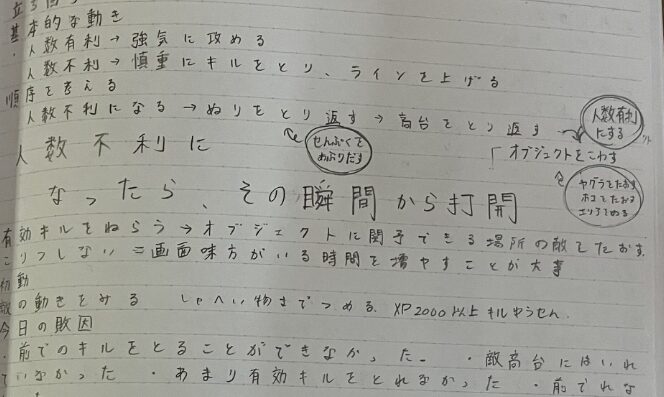 基本的な動き
人数有利→強気に攻める
人数不利→慎重にキルをとり、ラインを上げる
順序を考える
人数不利になる→ぬりをとり返す→高台をとり返す
人数有利にする
せんぷくをあぶりだす
「オブジェクトをこわす
ヤグラをたおす
ホコをたおす
エリアをぬる
人数不利に
なったら、その瞬間から打開
有効キルをねらう→オブジェクトに関予できる場所の敵をたおす。
こりつしない=画面味方がいる時間を増やすことが大事
初動
の動きをみる しゃへい物までつめる、XP2000以上キルゆうせん.
今日の敗因
・前でのキルをとることができなかった。 ・敵高台にはいれ
ていなかった ・あまり有効キルをとれなかった ・前でれな